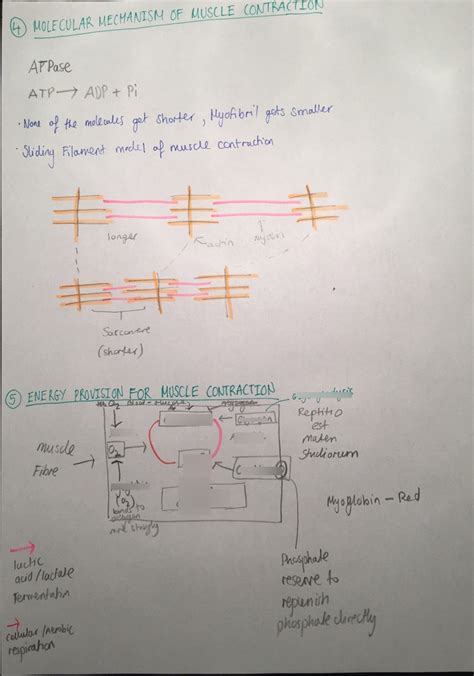 ④ MOLECULAR MECHANISM OF MUSCLE CONTRACTION
ATPase
ATP → ADP + Pi
· None of the molecules get shorter, Myofibril gets smaller
· Sliding Filament model of muscle contraction
longer
actin
Sarcomere
(shorter)
⑤ ENERGY PROVISION FOR MUSCLE CONTRACTION
O₂
Muscle
Fibre
(O₂)
binds to
oxygen
more strongly
Reptitio
est
mater
Studiorum
Myoglobin - Red
Phosphate
reserve to
replenish
phosphate directly
lactic
acid/lactate
Fermentation
cellular/aerobic
respiration